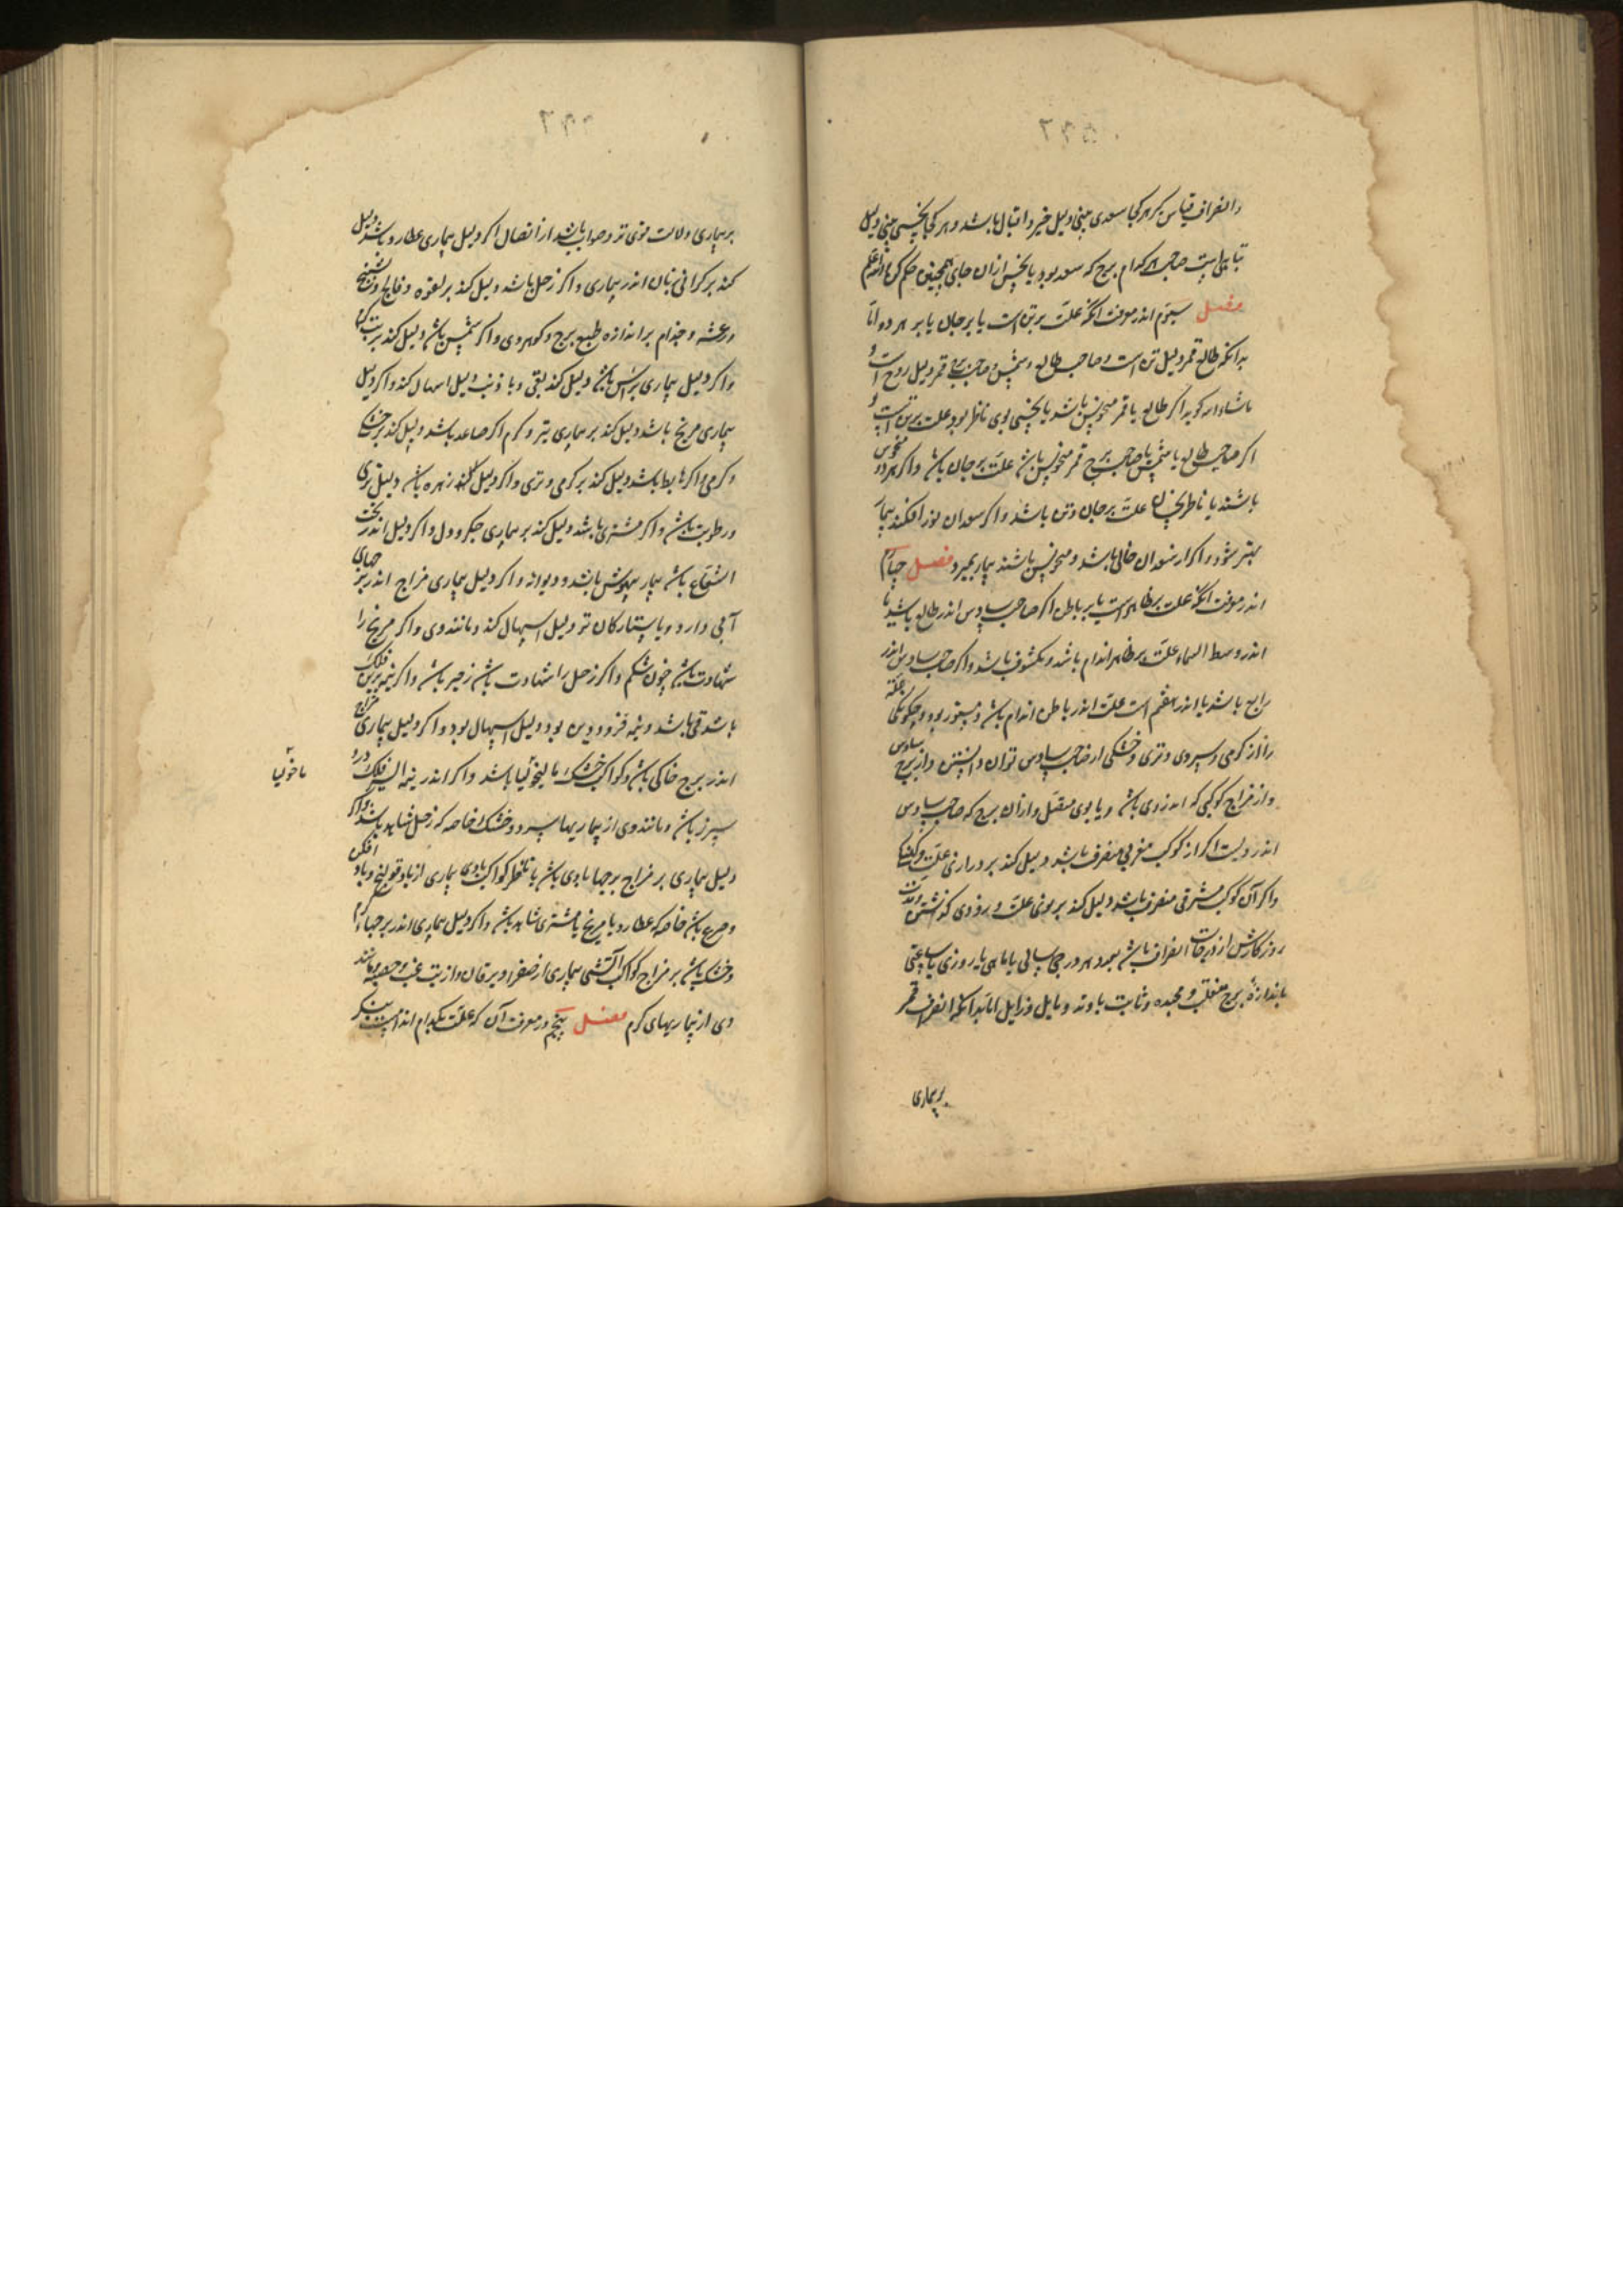 و انصراف قیاس کن هر کجا سعدی بینی دلیل خیر و اقبال باشد و هر کجا نحسی بینی دلیل
تباهی است صاحب هر کدام برج که سعد بود یا نحس از آن جای همچنین حکم کن والله اعلم
فصل سیوم اندر معرفت آنکه علت بر تن است یا بر جان یا بر هر دو اما
بدانکه طالع قمر دلیل تن است و صاحب طالع و شمس و صاحب برج قمر دلیل روح است و
ماشاءالله کوید اکر طالع یا قمر منحوس باشد یا نحسی بوی ناظر بود علت بر تن است و
اکر صاحب طالع یا شمس یا صاحب برج قمر منحوس باشد علت بر جان باشد و اکر هر دو منحوس
باشند یا ناظر بنحسان علت بر جان و تن باشد و اکر سعدان نور افکنند بیمار
بهتر شود و اکر از سعدان خالی باشد و منحوس باشند بیمار بمیرد فصل چهارم
اندر معرفت آنکه علت بر ظاهر است یا بر باطن اکر صاحب سادس اندر طالع باشد یا
اندر وسط السماء علت بر ظاهر اندام باشد و مکشوف باشد و اکر صاحب سادس اندر
رابع باشد یا اندر هفتم است علت اندر باطن اندام باشد و مستور بود و چکونکی علة
را از کرمی و سردی و تری و خشکی از صاحب سادس توان دانستن و از برج سادس
و از مزاج کوکبی که اندر وی باشد و یا بوی متصل و از آن برج که صاحب سادس
اندر ویست اکر از کوکب مغربی منصرف باشد دلیل کند بر درازی علت و کهنکی
و اکر آن کوکب مشرقی منصرف باشد دلیل کند بر نوی علت و زودی کذشتن و مدت
روزکارش از درجات انصراف باشد بعدد هر درجه سالی یا ماهی یا روزی یا ساعتی
باندازهٔ برج منقلب و مجسده و ثابت یا وتد و مایل و زایل اما بدانکه انصراف قمر
بر بیماری
بر بیماری دلالت قوی تر و صواب باشد از اتصال اکر دلیل بیماری عطارد باشد دلیل
کند بر کرانی زبان اندر بیماری و اکر زحل باشد دلیل کند بر لقوه و فالج و تشنج
و رعشه و جذام بر اندازه طبع برج و کوهر وی و اکر شمس باشد دلیل کند بر تب کرم
و اکر دلیل بیماری براس باشد دلیل کند بقی و با ذنب دلیل اسهال کند و اکر دلیل
بیماری مریخ باشد دلیل کند بر بیماری تیز و کرم اکر صاعد باشد دلیل کند بر خشکی
و کرمی و اکر هابط باشد دلیل کند بر کرمی و تری و اکر دلیل کننده زهره باشد دلیل تری
و رطوبت باشد و اکر مشتری باشد دلیل کند بر بیماری جکر و دل و اکر دلیل اندر تحت
الشعاع باشد بیمار بیهوش باشد و دیوانه و اکر دلیل بیماری مزاج اندر برجهای
آبی دارد و با ستارکان تر دلیل اسهال کند و مانند وی و اکر مریخ را
شهادت باشد خون شکم و اکر زحل را شهادت باشد زحیر باشد و اکر نیمه برین فلک
باشد قی باشد و نیمه فرودین بود دلیل اسهال بود و اکر دلیل بیماری مزاج
اندر برج خاکی باشد و کواکب خشک مالیخولیا باشد و اکر اندر نیمه فلک درد
سپرز باشد و مانند وی از بیماریها سرد و خشک خاصه که زحل شاهد باشد و اکر
دلیل بیماری بر مزاج برجها بادی باشد یا ناظر کواکب بادی بیماری از باد قولنج و باد افکن
و صرع باشد خاصه که عطارد با مریخ یا مشتری شاهد باشد و اکر دلیل بیماری اندر برجهاء کرم
و خشک باشد بر مزاج کواکب آتشی بیماری از صفرا و یرقان و از تب غب و حصبه و مانند
وی از بیماریهای کرم فصل پنجم در معرفت آن که علت بکدام اندامست بنکر
ماخولیا